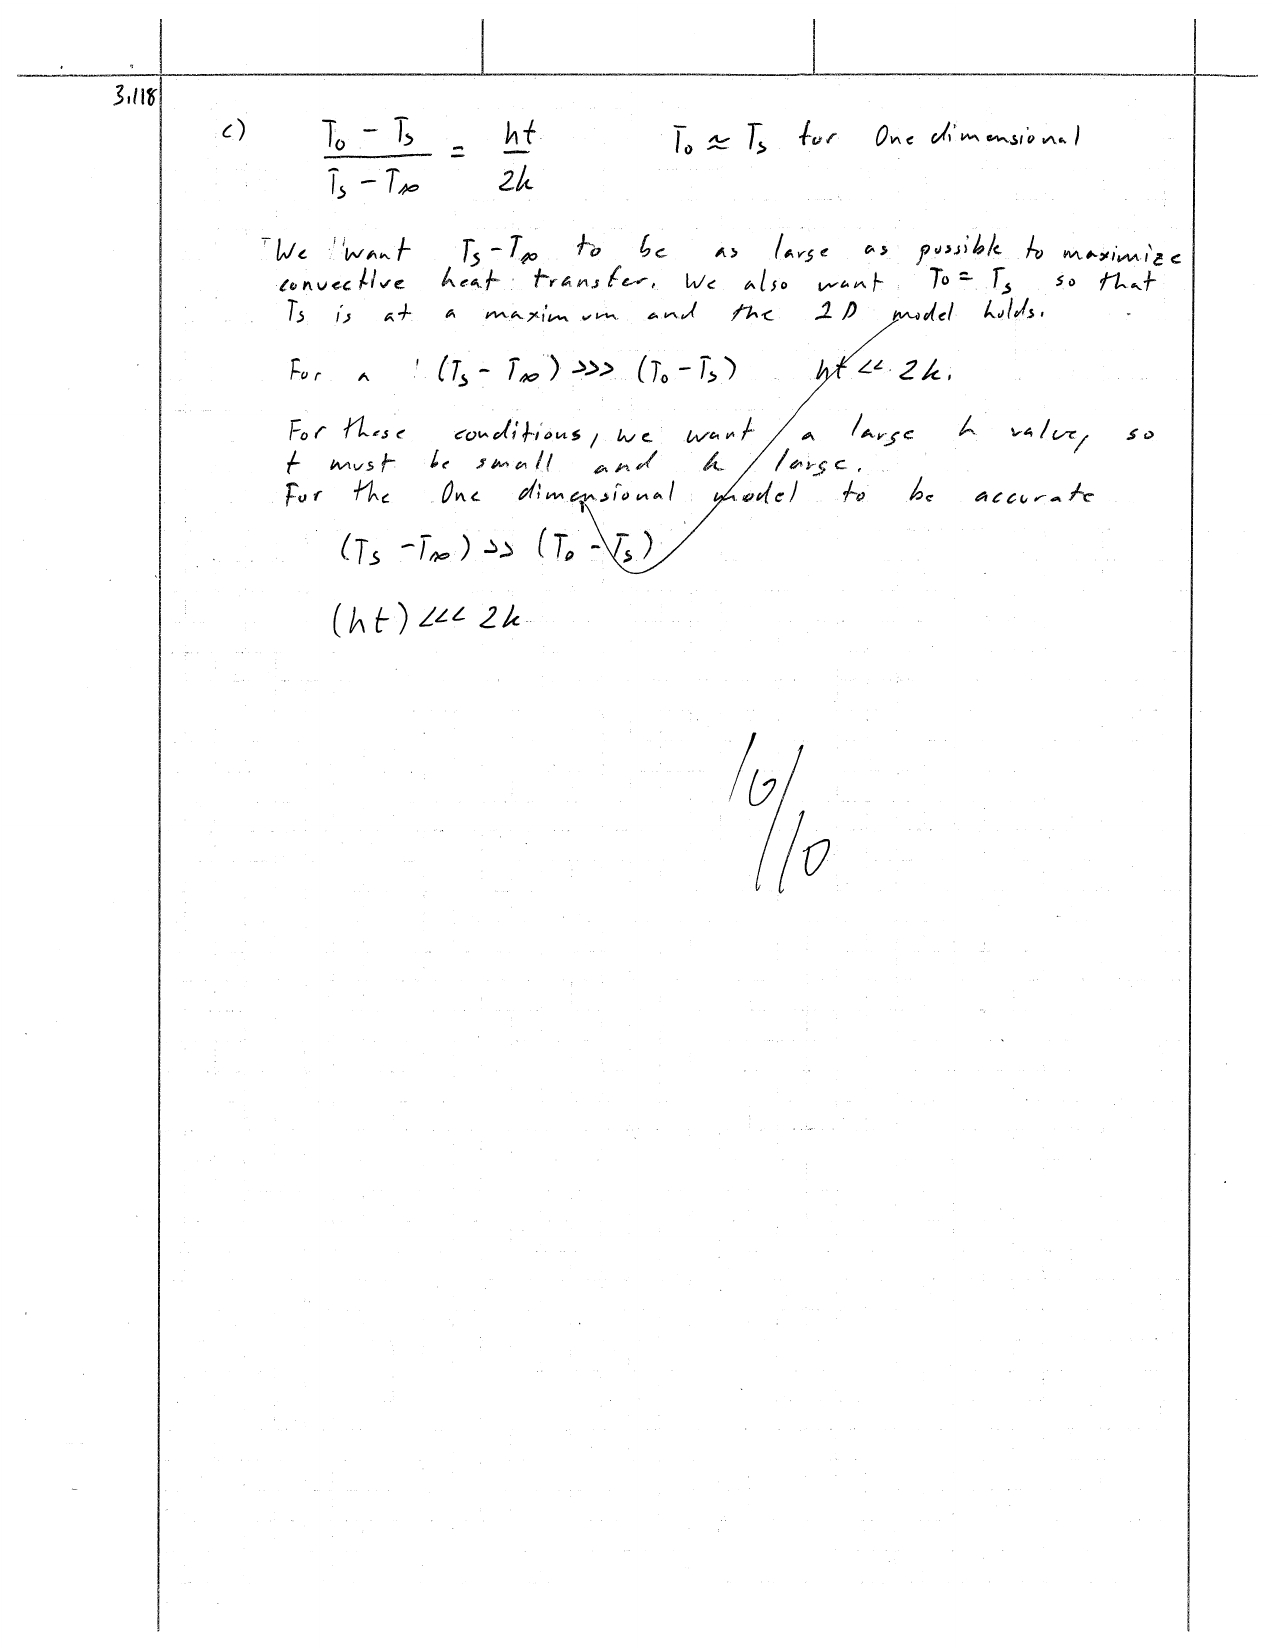 3.118
c) T₀ - Tₛ / Tₛ - T∞ = ht / 2k T₀ ≈ Tₛ for One dimensional
We want Tₛ - T∞ to be as large as possible to maximize
convective heat transfer. We also want T₀ = Tₛ so that
Tₛ is at a maximum and the 2D model holds.
For a (Tₛ - T∞) >>> (T₀ - Tₛ) ht << 2k.
For these conditions, we want a large h value, so
t must be small and k large.
For the One dimensional model to be accurate
(Tₛ - T∞) >> (T₀ - Tₛ)
(ht) <<< 2k
10/
/10